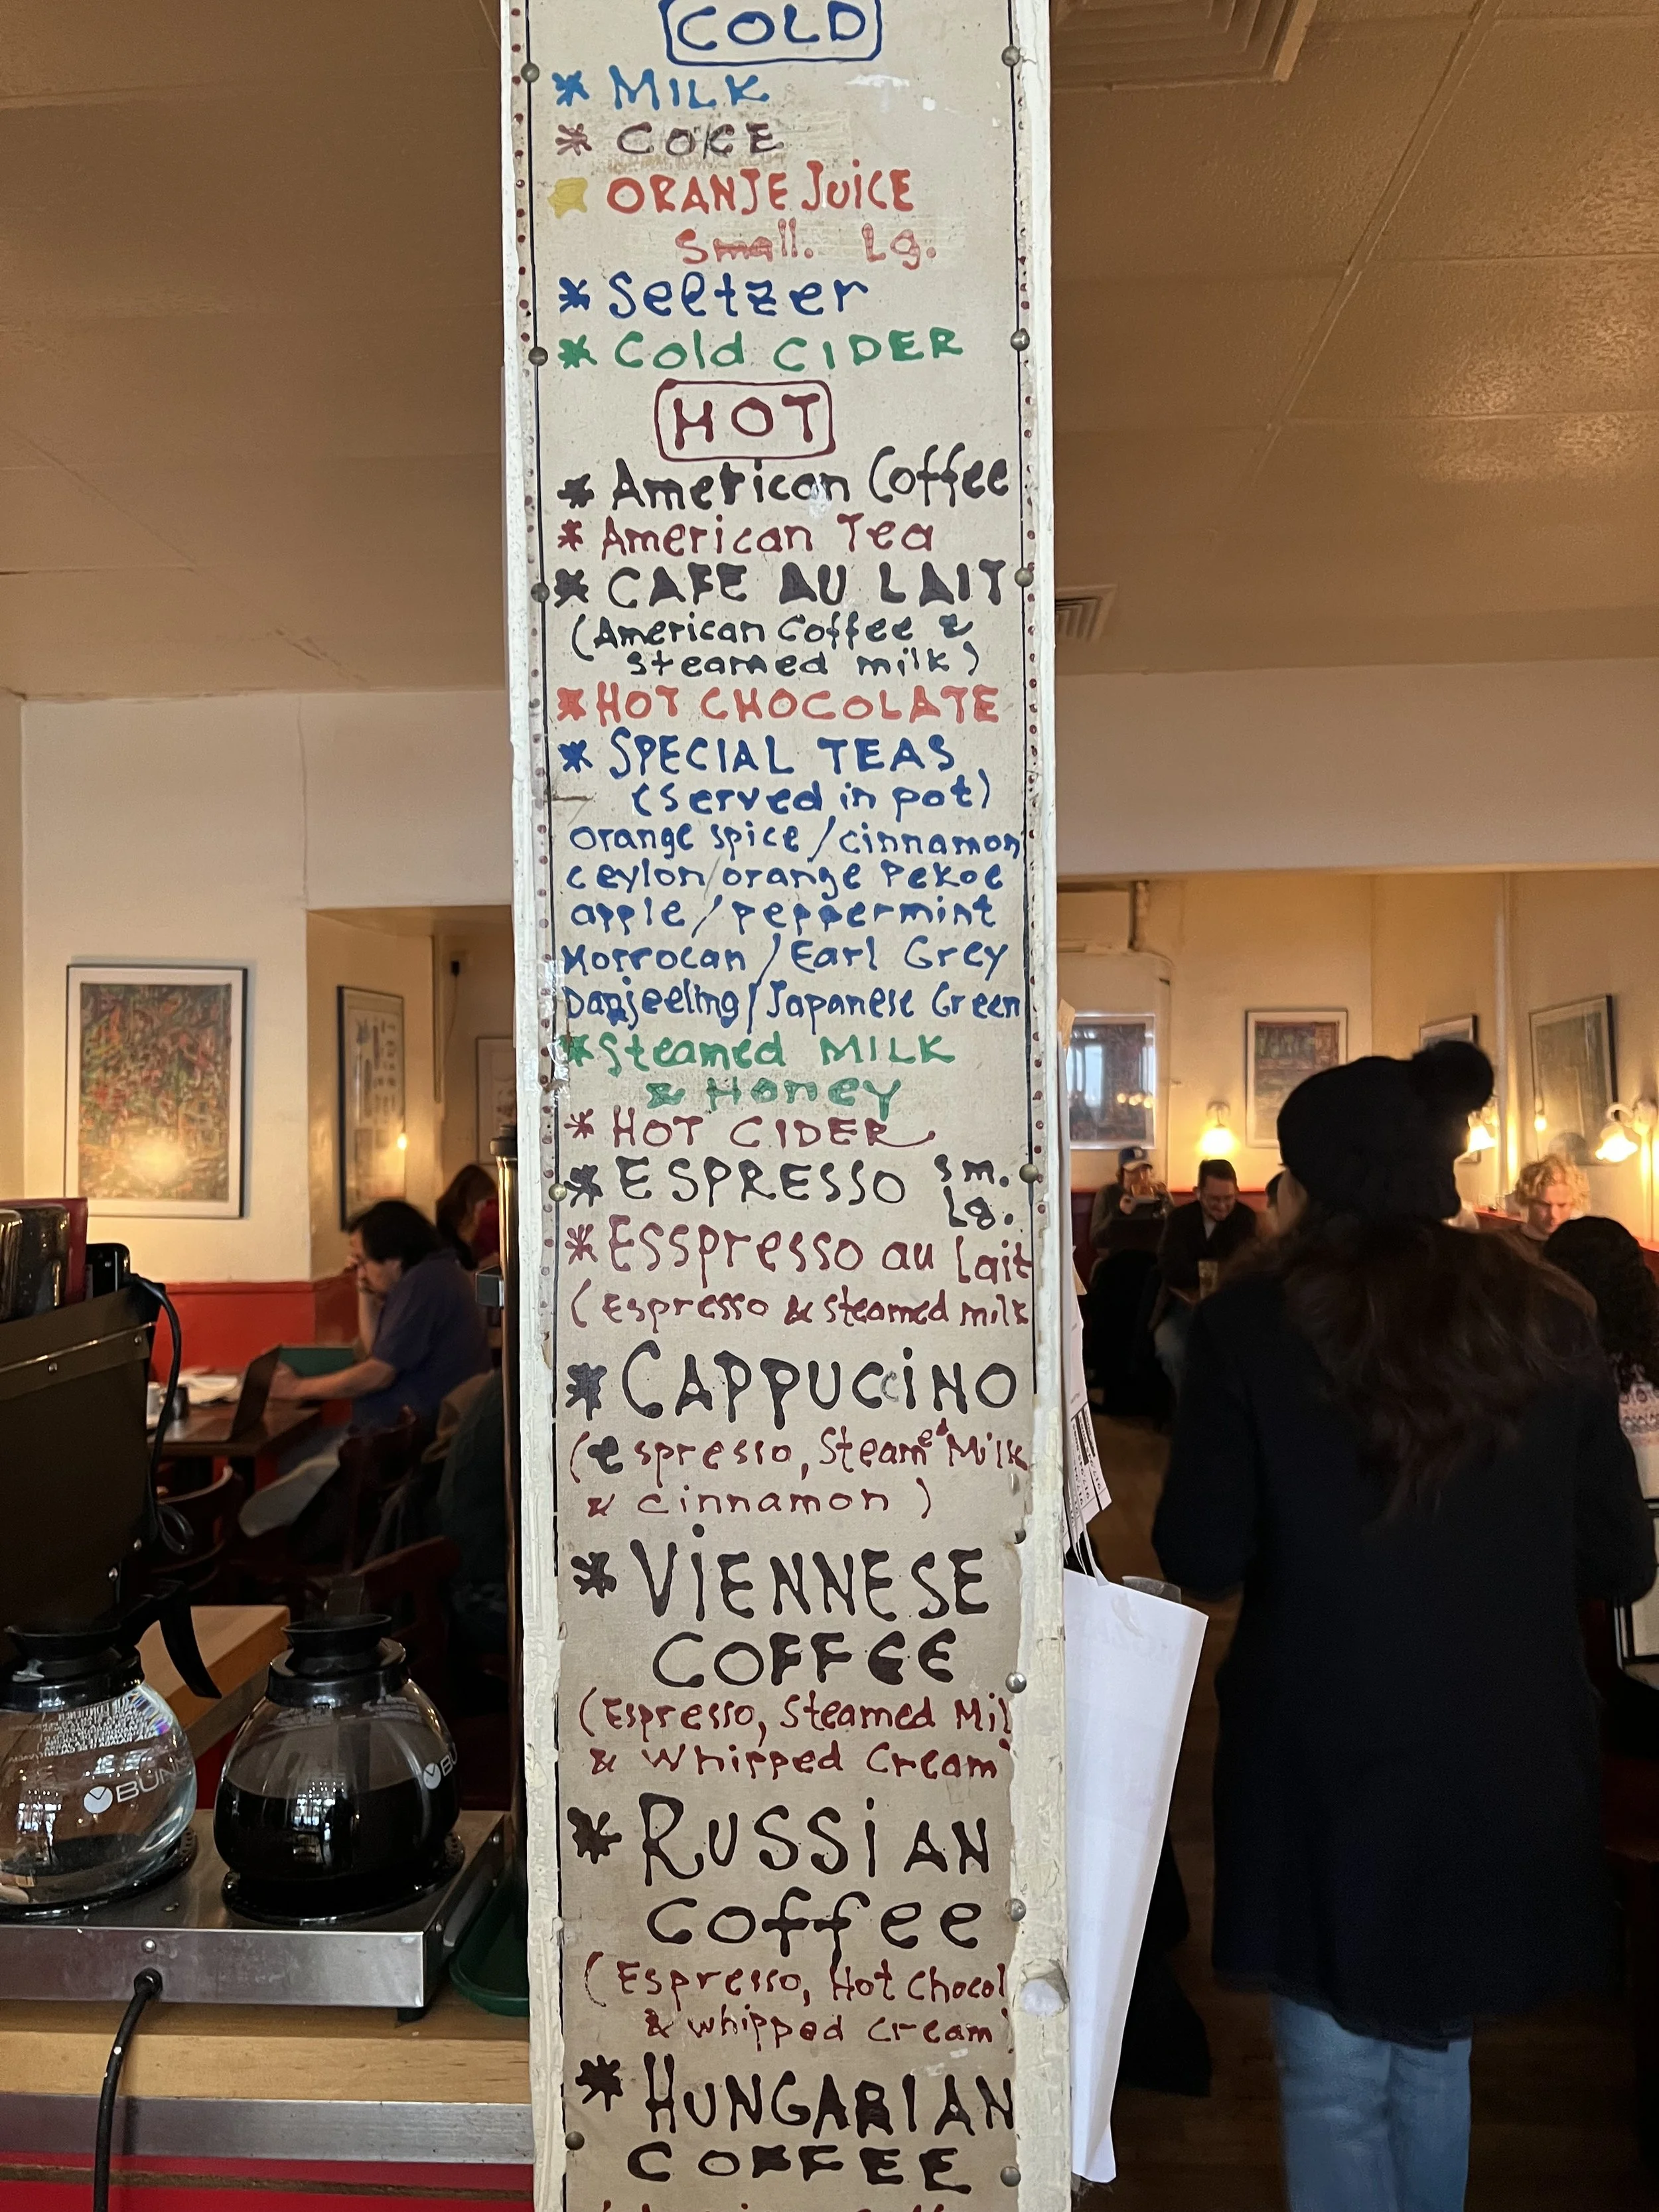 COLD
* MILK
* COKE
ORANJE JUICE
Small. Lg.
* Seltzer
* Cold CIDER
HOT
* American Coffee
* American Tea
* CAFE AU LAIT
(American Coffee &
steamed milk)
* HOT CHOCOLATE
* SPECIAL TEAS
(Served in pot)
Orange spice / cinnamon
ceylon / orange Pekoe
apple / peppermint
Morrocan / Earl Grey
Darjeeling / Japanese Green
* Steamed MILK
& Honey
* HOT CIDER
* ESPRESSO sm.
Lg.
* Esspresso au Lait
(Espresso & steamed milk
* CAPPUCCiNO
(espresso, Steamed Milk
& cinnamon)
* ViENNESE
COFFEE
(Espresso, Steamed Mil
& Whipped Cream)
* RUSSiAN
Coffee
(Espresso, Hot Chocol
& whipped cream)
* HUNGARIAN
COFFEE
BUNN
BU